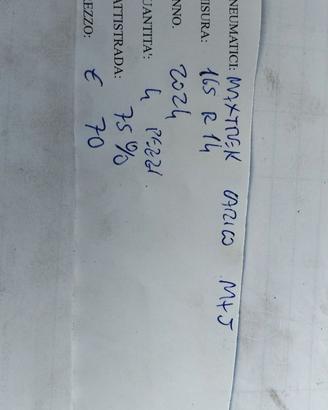 NEUMATICI: MAXTREK CARICO M+S
ISURA: 165 R 14
NNO. 2024
UANTITA': 4 PEZZI
ATTISTRADA: 75%
REZZO: € 70